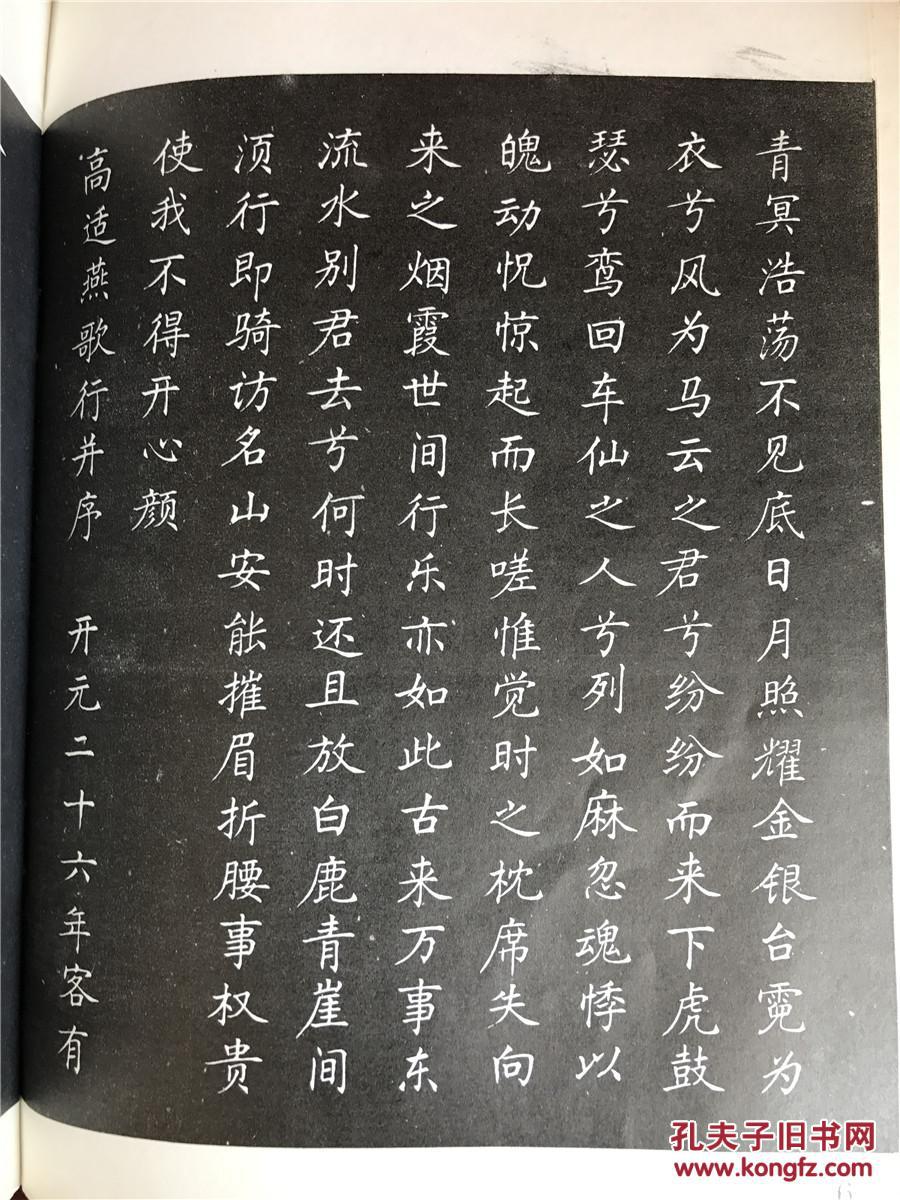 青冥浩荡不见底日月照耀金银台霓为
衣兮风为马云之君兮纷纷而来下虎鼓
瑟兮鸾回车仙之人兮列如麻忽魂悸以
魄动怳惊起而长嗟惟觉时之枕席失向
来之烟霞世间行乐亦如此古来万事东
流水别君去兮何时还且放白鹿青崖间
须行即骑访名山安能摧眉折腰事权贵
使我不得开心颜
高适燕歌行并序 开元二十六年客有
孔夫子旧书网
www.kongfz.com